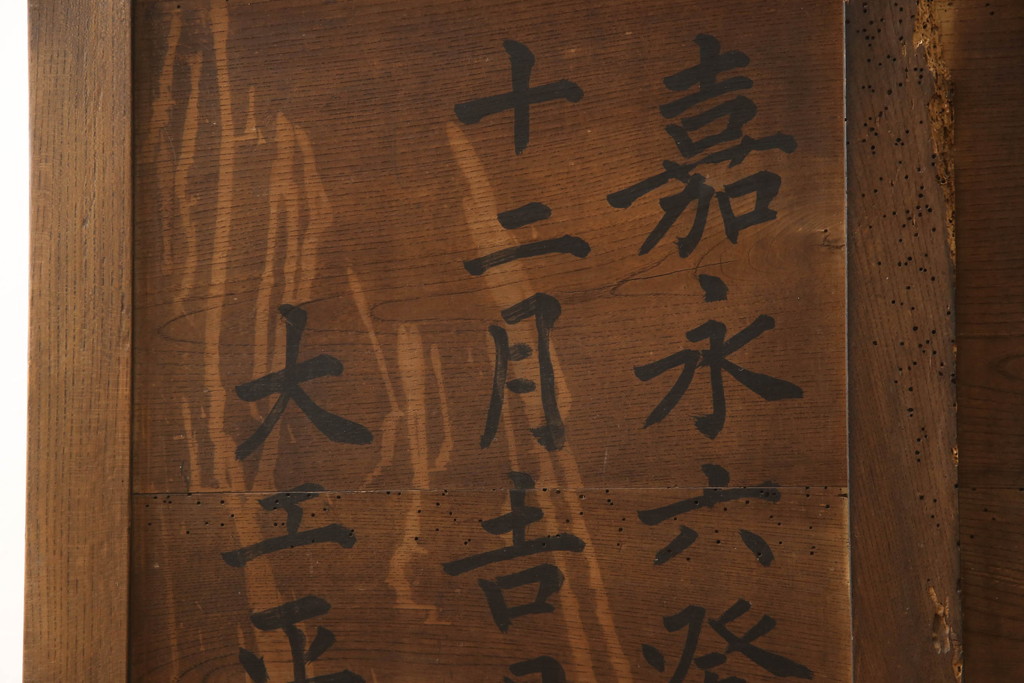 嘉永六癸
十二月吉
大工平